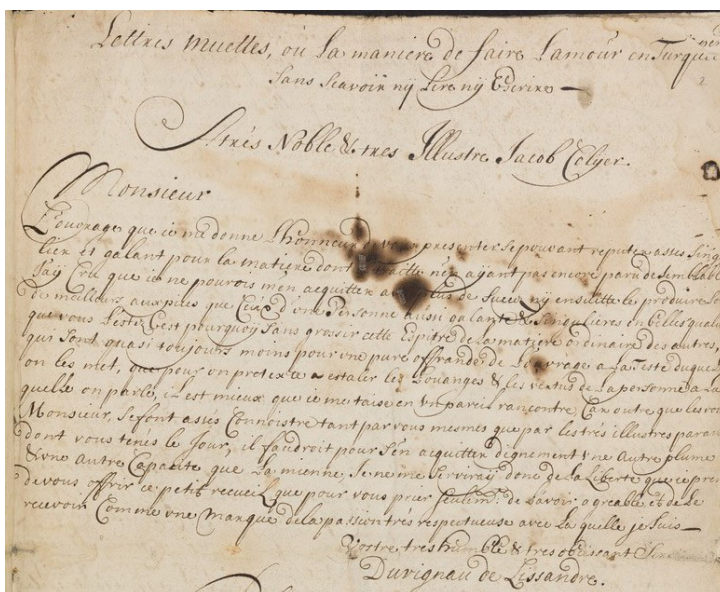 Lettres muettes, ou La maniere de faire Lamour en Turquie
Sans Scavoir nij Lire nij Escrire —
A trés Noble & tres Illustre Jacob Colyer.
Monsieur
L'ouvrage que ie me donne L'honneur de vous presenter se pouvant reputer asses Sing
lier et galant pour la matiere dont il traitte n'en ayant pas encore paru de Semblabl
J'ay Crû que ie ne pouvois men acquitter a plus de Succes nij ensuitte le produire So
de meilleurs auspices que Ceux d'une Personne aussi galante & Singulieres en belles qual
que vous L'estes, C'est pourquoy Sans grossir cette Epitre de la matiere ordinaire des autres,
qui Sont quasi toujours moins pour une pure offrande de L'ouvrage a La Teste duquel
on les met, que pour un pretexte a estaler les Louanges & les vertus de La personne a La
quelle on parle, il Est mieux que ie me taise en un pareil rencontre, Car outre que les vos
Monsieur, Se font assés Connoistre tant par vous mesmes que par les trés illustres paran
dont vous tenés le Jour, il faudroit pour s'en acquitter dignement une Autre plume
& une autre Capacité que La mienne, Je ne me Serviray donc de La Liberté que ie pren
de vous offrir ce petit recueil que pour vous prier Seulemt. de L'avoir agreable et de Le
recevoir Comme une marque de la passion trés respectueuse avec La quelle je Suis —
Vostre, tres humble & tres obeissant Ser
Duvignau de Lissandre.